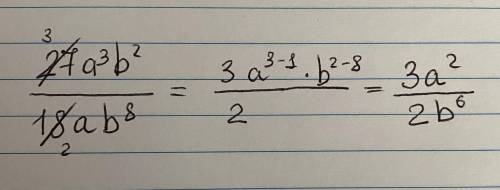 3
27a³b² / 18ab⁸ = 3a³⁻¹·b²⁻⁸ / 2 = 3a² / 2b⁶
2